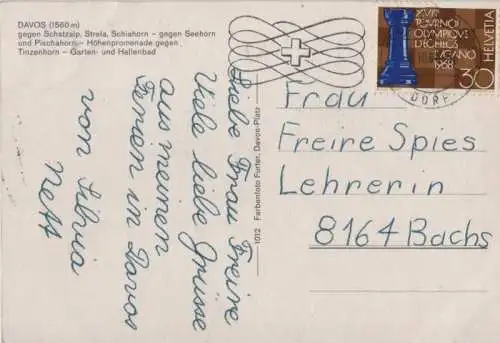 DAVOS (1560 m)
gegen Schatzalp, Strela, Schiahorn – gegen Seehorn
und Pischahorn – Höhenpromenade gegen
Tinzenhorn – Garten- und Hallenbad
Liebe Frau Freire
Viele liebe Grüsse
aus meinen
Ferien in Davos
von Silvia
Neff
1012 Farbenfoto Furter, Davos-Platz
XVIII
TOURNOI
OLYMPIQUE
D'ECHECS
LUGANO
1968
HELVETIA
30
DORF
Frau
Freire Spies
Lehrerin
8164 Bachs